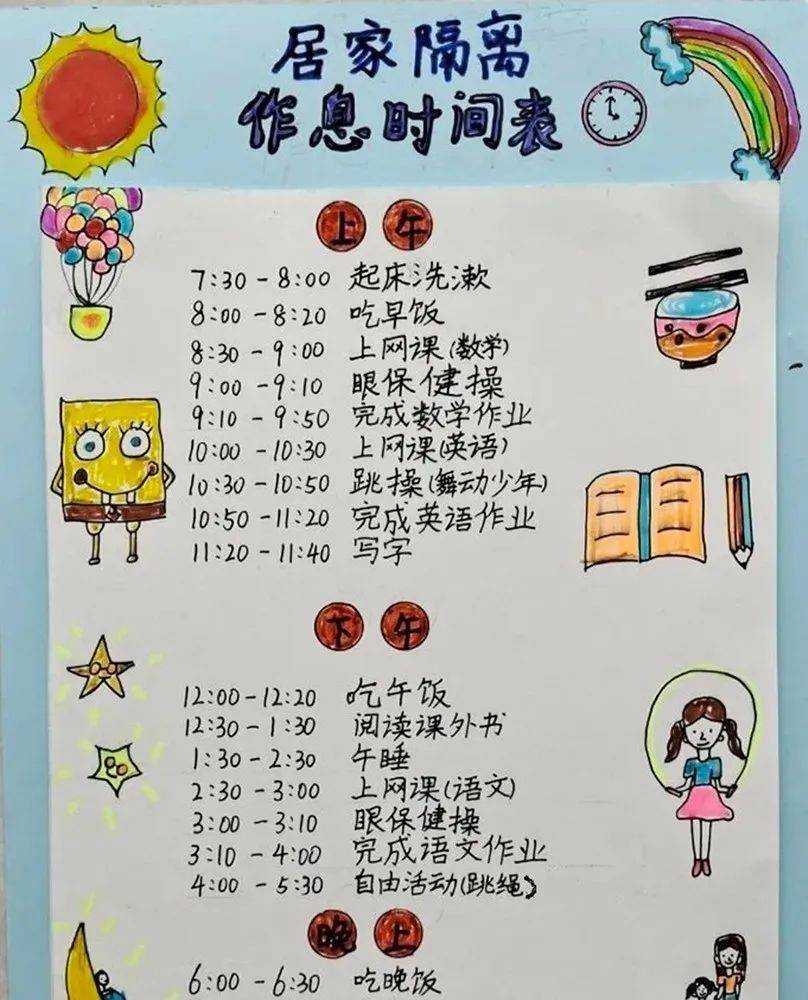 居家隔离
作息时间表
上午
7:30-8:00 起床洗漱
8:00-8:20 吃早饭
8:30-9:00 上网课(数学)
9:00-9:10 眼保健操
9:10-9:50 完成数学作业
10:00-10:30 上网课(英语)
10:30-10:50 跳操(舞动少年)
10:50-11:20 完成英语作业
11:20-11:40 写字
下午
12:00-12:20 吃午饭
12:30-1:30 阅读课外书
1:30-2:30 午睡
2:30-3:00 上网课(语文)
3:00-3:10 眼保健操
3:10-4:00 完成语文作业
4:00-5:30 自由活动(跳绳)
晚上
6:00-6:30 吃晚饭